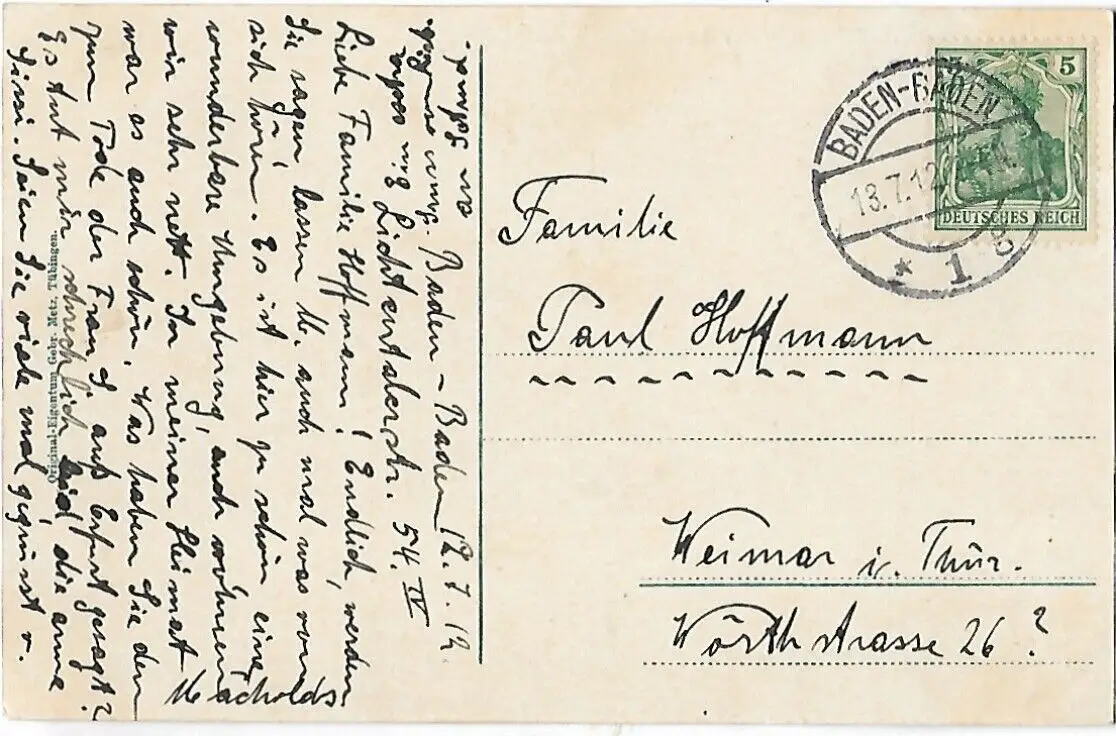 Baden-Baden 12.7.12.
Lichtentalerstr. 54. IV
Liebe Familie Hoffmann! Endlich, werden
Sie sagen, lassen M. auch mal was von
sich hören. Es ist hier zu schön, eine
wunderbare Umgebung, auch wohnen
wir sehr nett. In meiner Heimat
war es auch schön. Was haben Sie denn
zum Tode der Frau G aus Erfurt gesagt?
Es tut mir schrecklich leid, die arme
Sissi. Seien Sie viele mal gegrüsst v.
Macholds
Original-Eigentum Gebr. Metz, Tübingen.
BADEN-BADEN
13.7.12
N.
* 1
5
DEUTSCHES REICH
Familie
Paul Hoffmann
Weimar i. Thür.
Wörthstrasse 26?